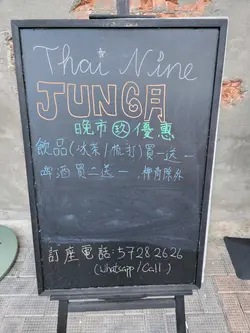 Thai Nine
JUN6月
晚市 玖 優惠
飲品(冰茶/梳打)買一送一
啤酒買二送一
訂座電話:57282626
(Whatsapp/Call)